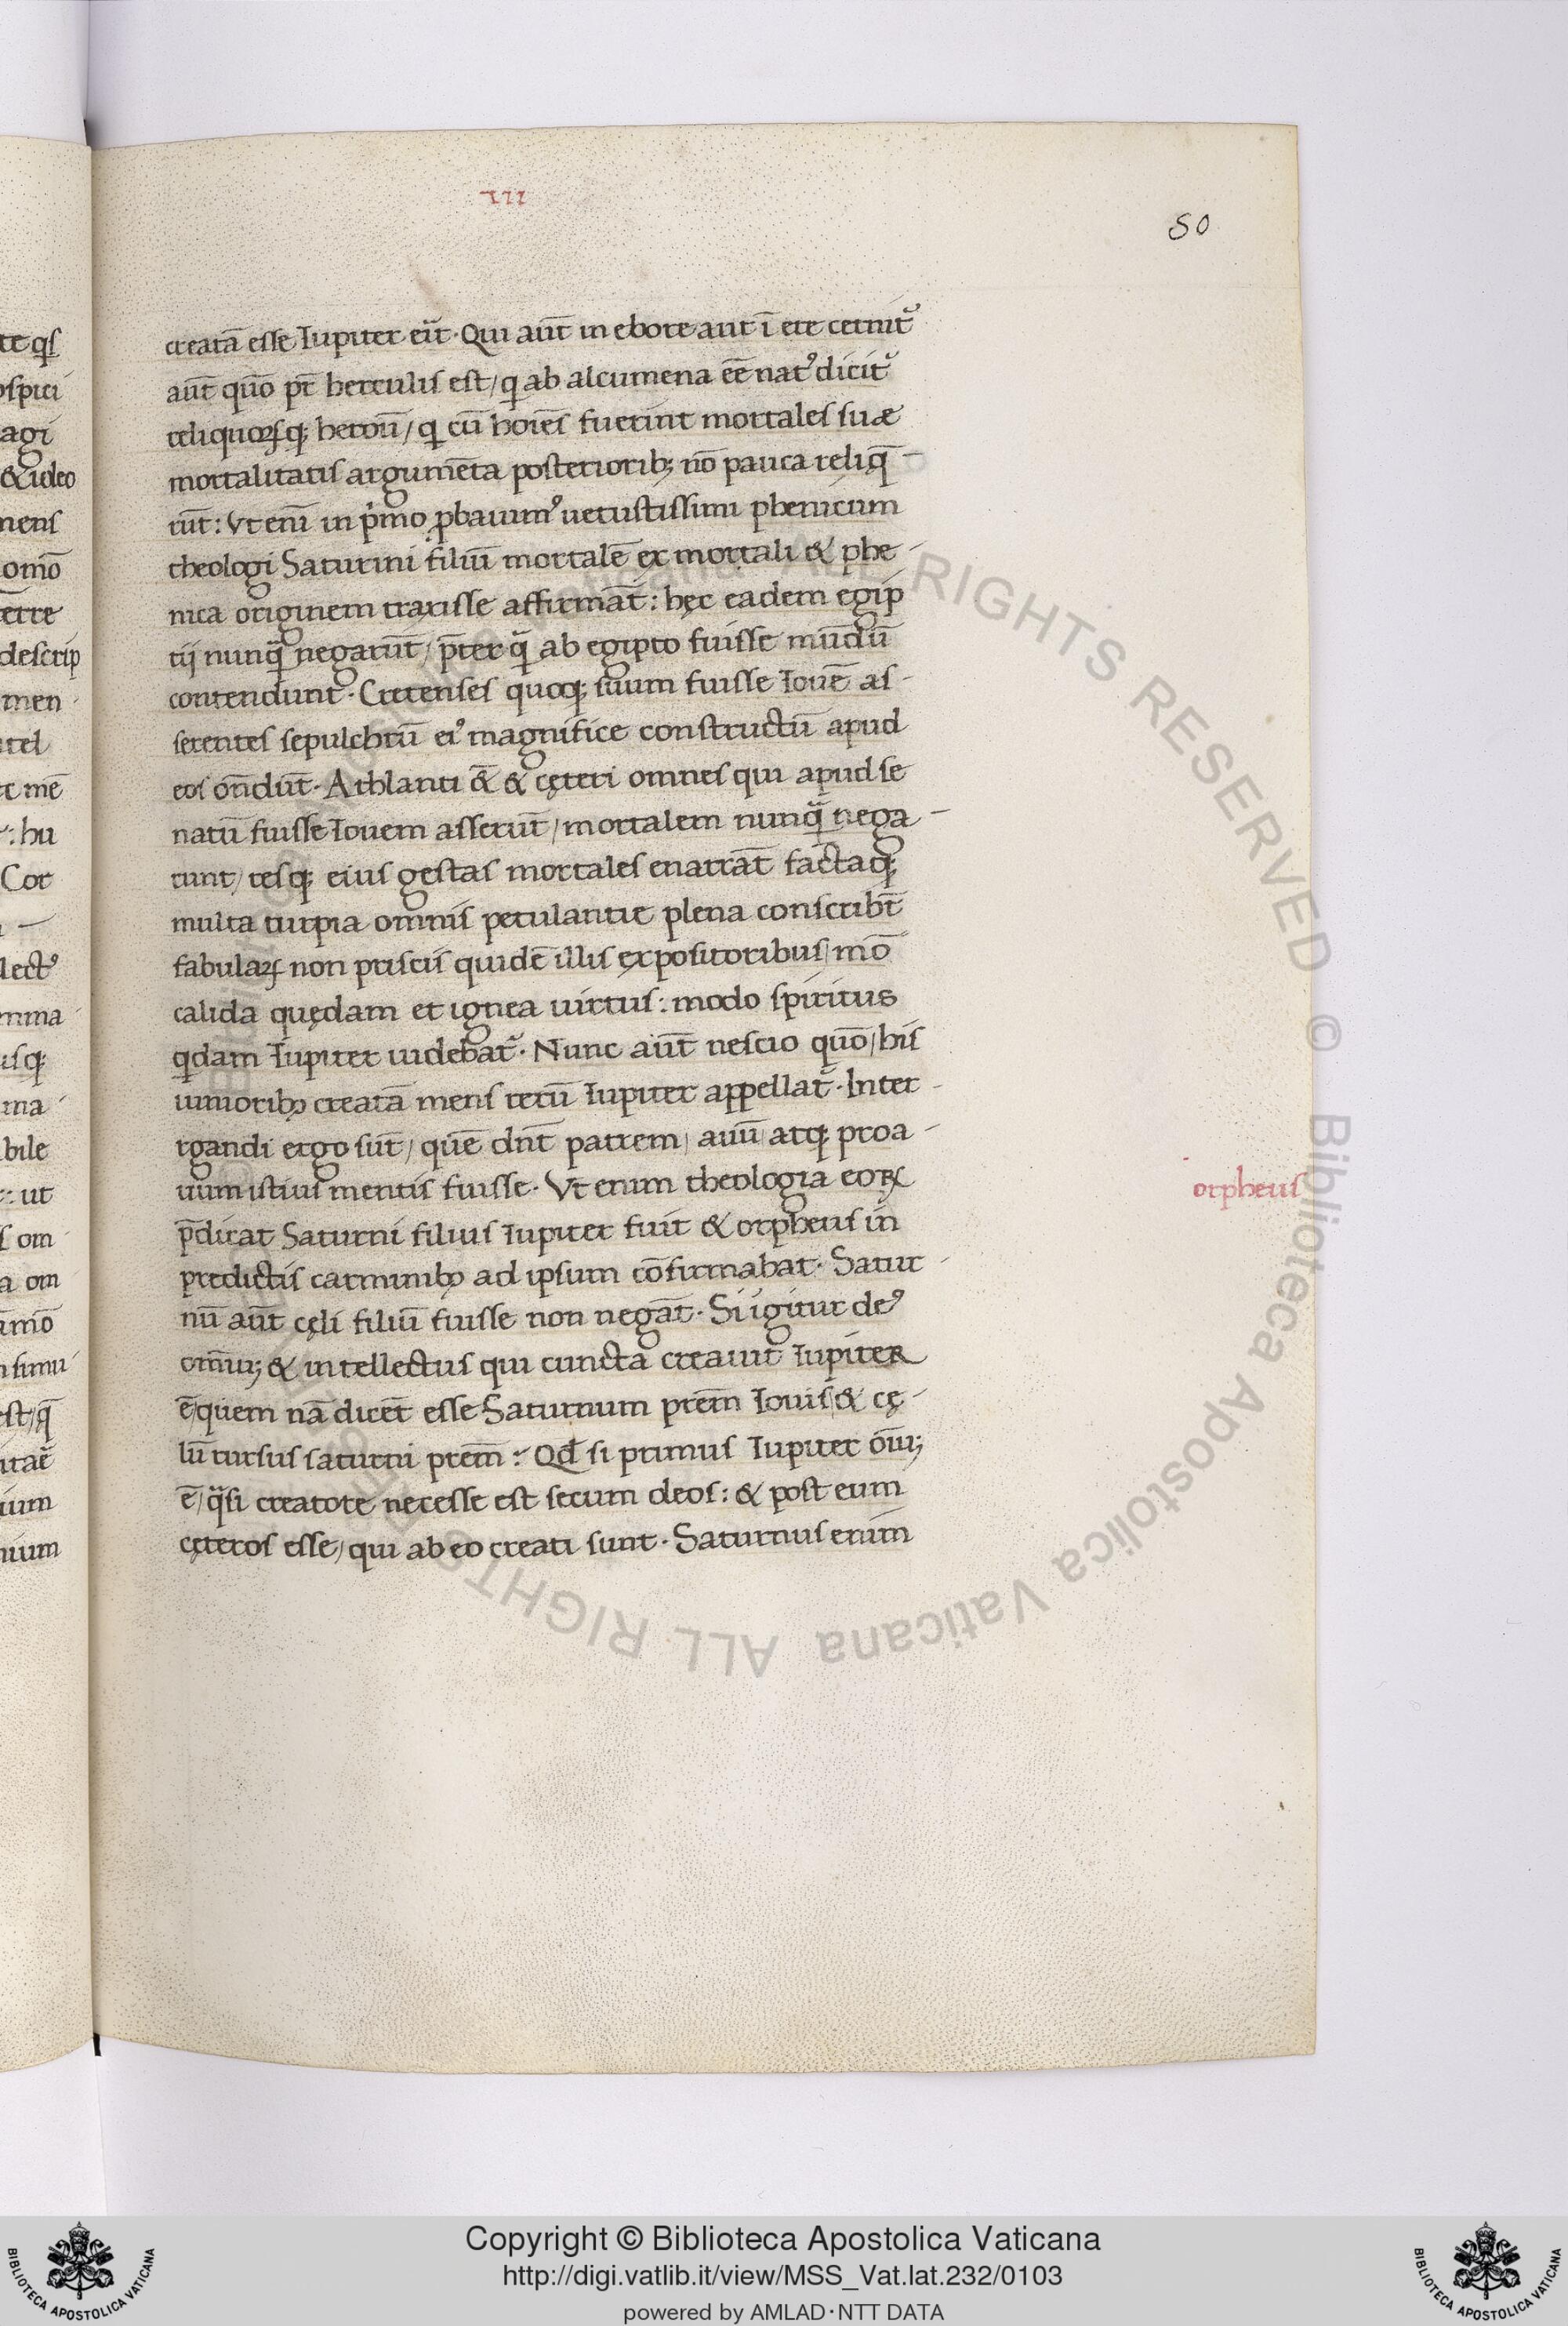 III
50
creatā esse Iupiter eū̃t. Qui aūt in ebore aut ī ere cernit᷑
aūt quō pr̄ herculis est/ q ab alcumena eē natꝰ dicit᷑
reliquorꝝq; heroū/ q cū hoīes fuerint mortales suæ
mortalitatis argumēta posteriorib; nō pauca reliq̄-
rūt: Vt enī in pͥmo ꝓbauimꝰ uetustissimi phenicum
theologi Saturini filiū mortalē ex mortali & phe-
nica originem traxisse affirmāt: hęc eadem egip
tij nunq̃ negarūt/ p̄ter q̃ ab egipto fuisse mūdū
contendunt. Cretenses quoq; suum fuisse Iouē as-
serentes sepulchrū eiꝰ magnifice constructū apud
eos oñdūt. Athlanti &̄ & cęteri omnes qui apud se
natū fuisse Iouem asserūt/ mortalem nunq̃ nega-
runt/ resq; eius gestas mortales enarrāt factaq;
multa turpia omnis petulantie plena conscribt̄
fabulaꝝ non priscis quidē illis expositoribus/ mō
calida quędam et ignea uirtus: modo spiritus
qdam Iupiter uidebat᷑. Nunc aūt nescio quō/ his
iunioribꝫ creatā mens rerū Iupiter appellat᷑. Inter-
rgandi ergo sūt/ quē dn̄t patrem/ auū atq; proa-
uum istius mentis fuisse. Vt enim theologia eoꝝ
p̄dicat Saturni filius Iupiter fuit & orpheus in
predictis carminibꝫ ad ipsum cōfirmabat. Satur-
nū aūt cęli filiū fuisse non negāt. Si igitur deꝰ
om̄iu; & intellectus qui cuncta creauit Iupiter
ē/ quem nā dicēt esse Saturnum prēm Iouis/ & cę-
lū rursus saturni prēm: Qđ si primus Iupiter oīu;
ē/ q̃si creatore necesse est secum deos: & post eum
cęteros esse/ qui ab eo creati sunt. Saturnus enim
orpheus
Copyright © Biblioteca Apostolica Vaticana
http://digi.vatlib.it/view/MSS_Vat.lat.232/0103
powered by AMLAD·NTT DATA